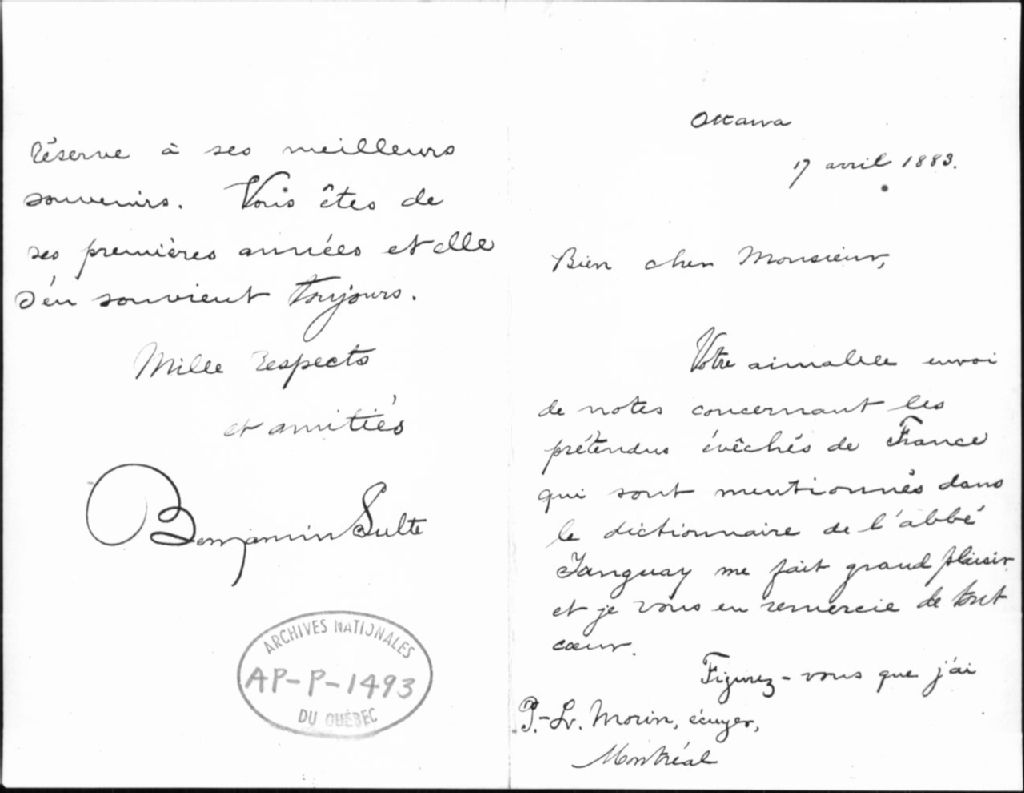 Ottawa
17 avril 1883.
Bien cher Monsieur,
Votre aimable envoi
de notes concernant les
prétendus évêchés de France
qui sont mentionnés dans
le dictionnaire de l'abbé
Tanguay me fait grand plaisir
et je vous en remercie de tout
cœur.
Figurez-vous que j'ai
P.-L. Morin, écuyer,
Montréal
réserve à ses meilleurs
souvenirs. Vous êtes de
ses premières années et elle
s'en souvient toujours.
Mille respects
et amitiés
Benjamin Sulte
ARCHIVES NATIONALES
AP-P-1493
DU QUÉBEC